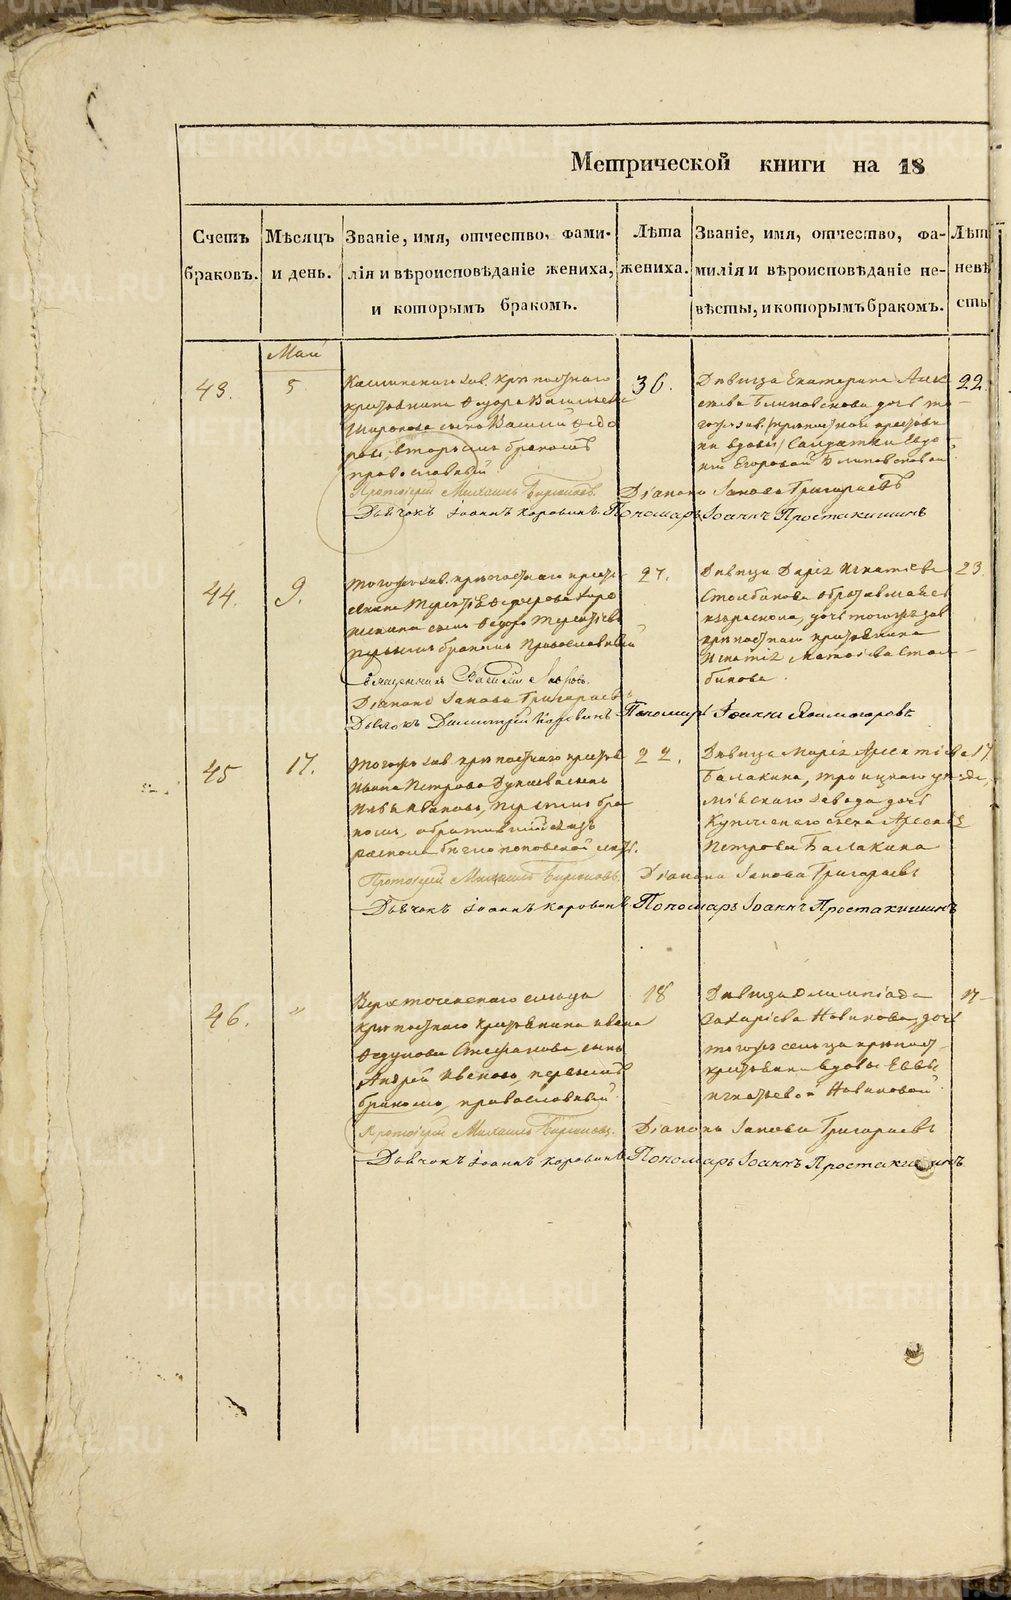 Метрической книги на 18
Счетъ браковъ.
Мѣсяцъ и день.
Званіе, имя, отчество, фами-
лія и вѣроисповѣданіе жениха,
и которымъ бракомъ.
Лѣта
жениха.
Званіе, имя, отчество, фа-
милія и вѣроисповѣданіе не-
вѣсты, и которымъ бракомъ.
Лѣт
невѣ
сты
Май
43.
5
Каслинскаго зав. крѣпостнаго
крестьянина Федора Васильева
Широкова сынъ Василій Федо
ровъ вторымъ бракомъ
православный
36.
Дѣвица Екатерина Алек
сѣева Блиновскова дочь то
гожъ зав.
вдовы Салдатки Евдо
кіи Егоровой Блиновсковой
22
Протоіерей Михаилъ Бирюковъ.
Діаконъ Іаковъ Григорьевъ
Дьячокъ Іоаннъ Коровинъ Пономарь Іоаннъ Простакишинъ
44.
9.
Тогожъ зав. крѣпостнаго кресть
янина Терентія Федорова
сынъ Федоръ Терентьевъ
первымъ бракомъ православный
27.
Дѣвица Дарія Игнатіева
Столбикова
изъ раскола, дочь тогожъ зав
крѣпостнаго крестьянина
Игнатія Стол
бикова.
23.
Священникъ Василій
Діаконъ Іаковъ Григорьевъ
Дьячокъ Димитрій Коровинъ Пономарь Іоаннъ
45
17.
Тогожъ зав. крѣпостнаго крестьян
Ивана Петрова сынъ
Иванова, первымъ бра
комъ, обратившійся изъ
раскола поповской секты.
22.
Дѣвица Марія Арсентіева
Балакина, Троицкаго уѣзда,
Міяскаго завода дочь
Купеческаго сына
Петрова Балакина
17.
Протоіерей Михаилъ Бирюковъ. Діаконъ Іаковъ Григорьевъ
Дьячокъ Іоаннъ Коровинъ Пономарь Іоаннъ Простакишинъ
46.
"
сельца
крѣпостнаго крестьянина Ивана
Стефанова, сынъ
Андрей Ивановъ, первымъ
бракомъ, православный
18
Дѣвица Олимпіада
Захаріева Новикова, дочь
тогожъ сельца крѣпост.
крестьянина вдовы Еввы
Игнатьевой Новиковой
17
Протоіерей Михаилъ Бирюковъ. Діаконъ Іаковъ Григорьевъ
Дьячокъ Іоаннъ Коровинъ Пономарь Іоаннъ Простакишинъ
METRIKI.GASO-URAL.RU